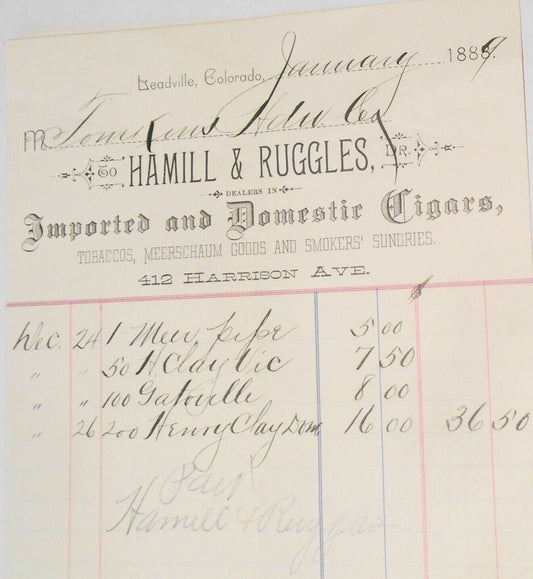 Leadville, Colorado, January 1889.
M Tomkins Hdw Co
To HAMILL & RUGGLES, DR.
DEALERS IN
Imported and Domestic Cigars,
TOBACCOS, MEERSCHAUM GOODS AND SMOKERS' SUNDRIES.
412 HARRISON AVE.
$
Dec. 24 1 Meer pipe 5 00
" " 50 H Clay Vic 7 50
" " 100 8 00
" 26 200 Henry Clay Dom. 16 00 36 50
Paid
Hamill & Ruggles